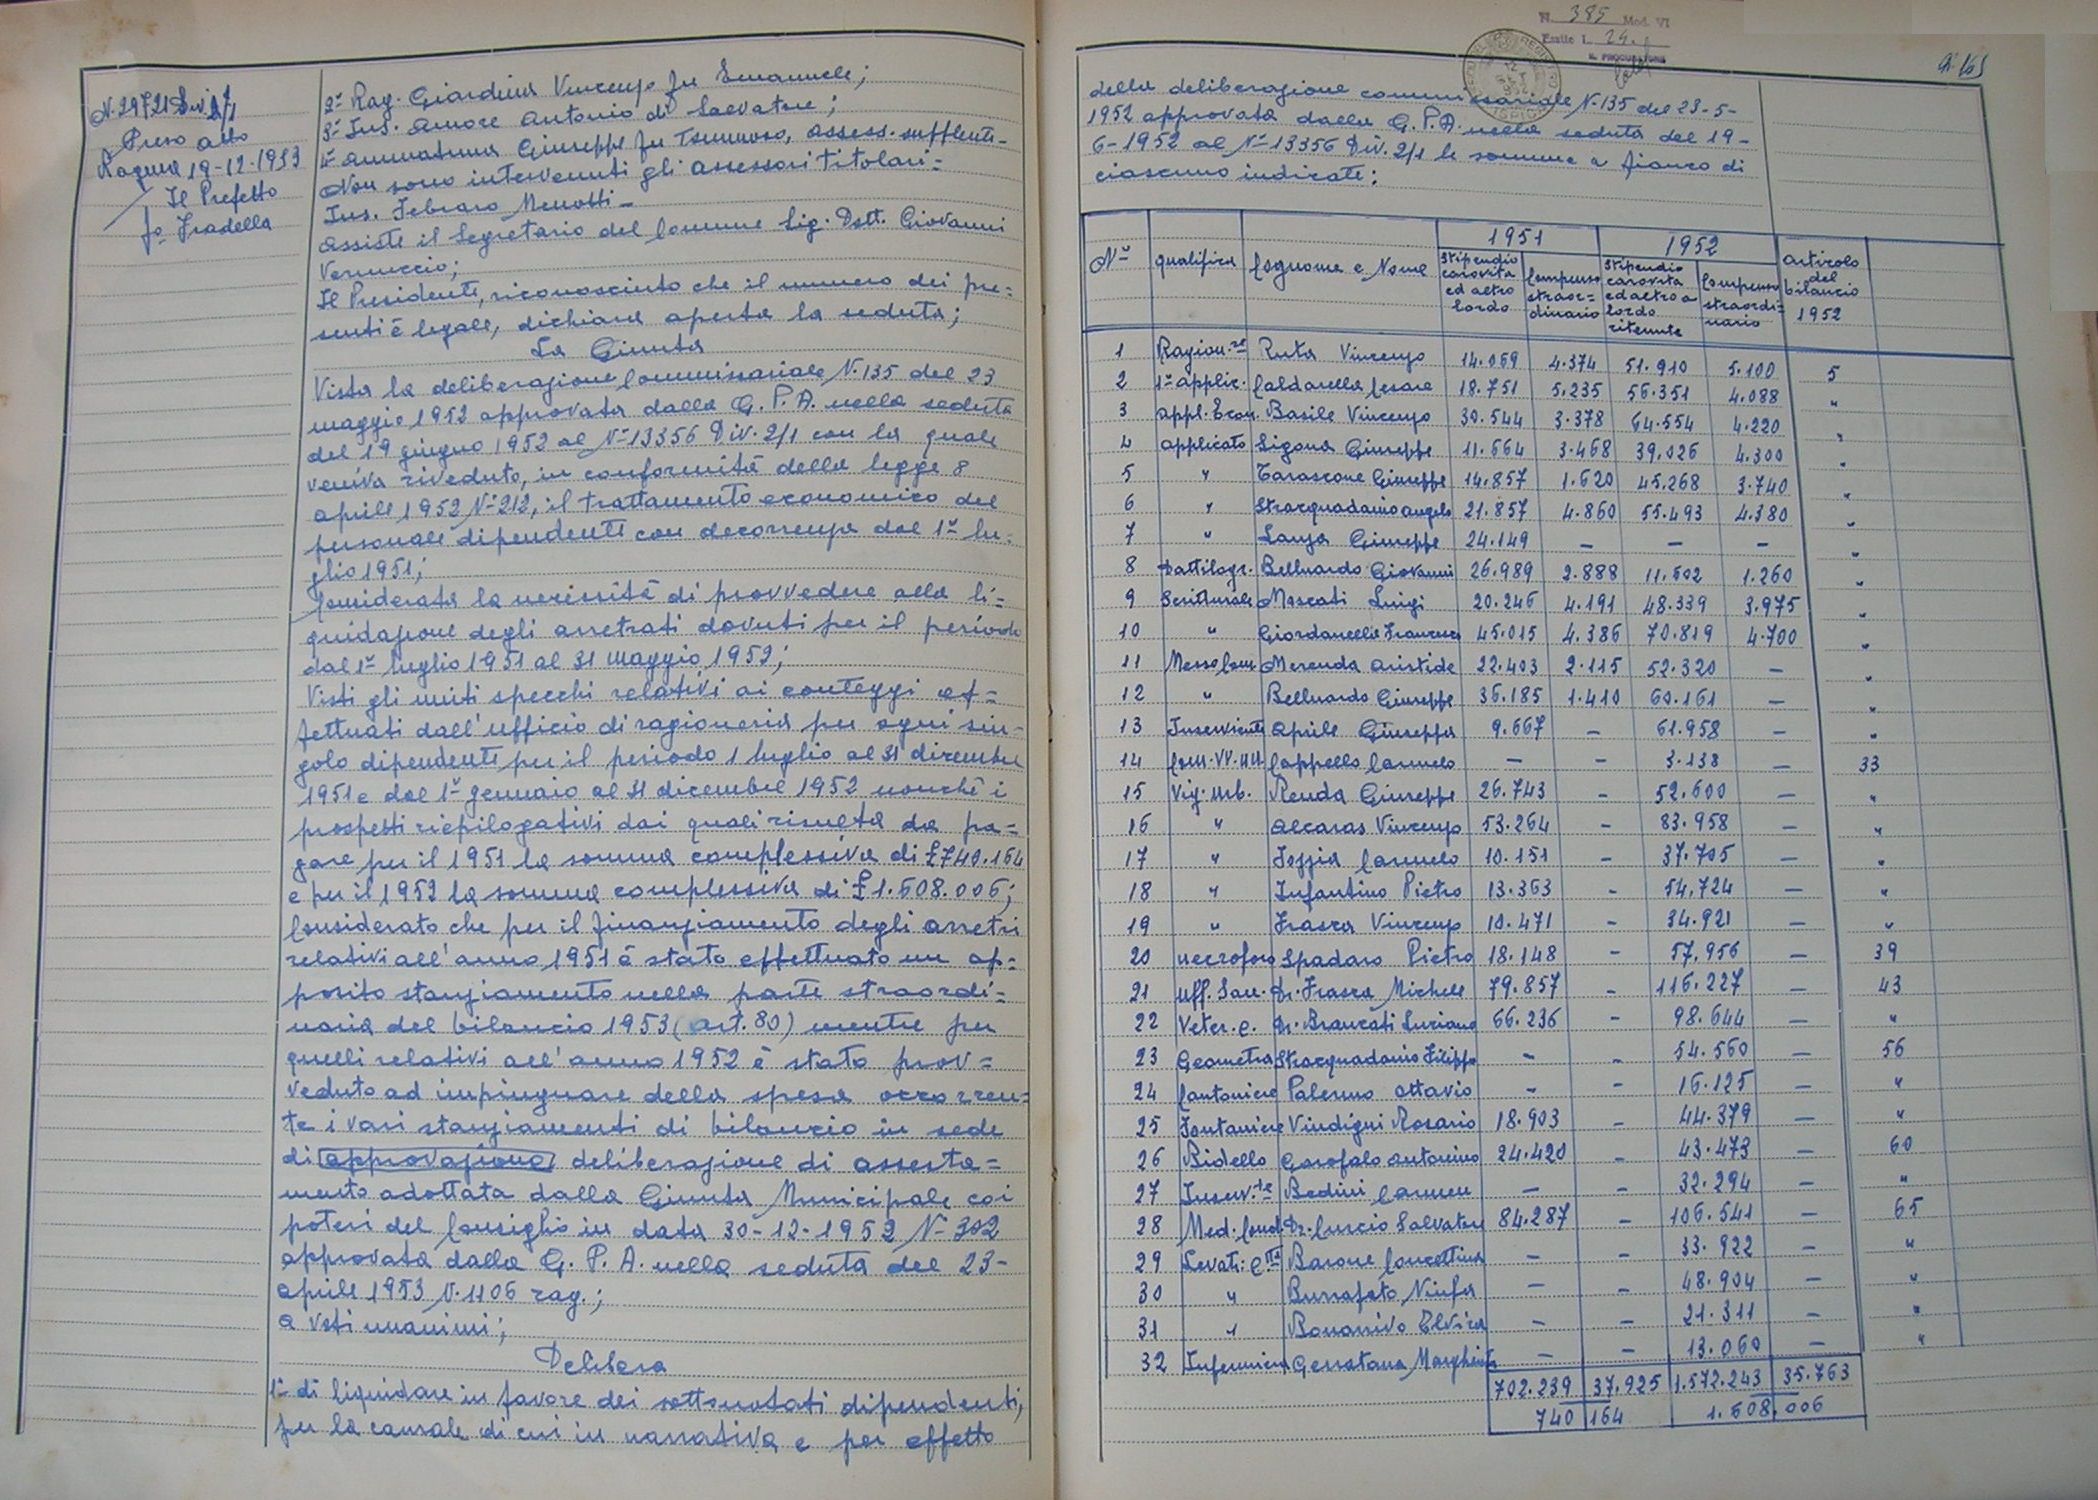 N. 29721 Div. 2/1
Preso atto
Ragusa 19-12-1953
Il Prefetto
fo Fradella
2° Rag. Giardina Vincenzo fu Emanuele;
3° Ins. Amore Antonio di Salvatore;
4° Ammatuna Giuseppe fu Tommaso, assess. supplenti-
Non sono intervenuti gli assessori titolari=
Ins. Febraro Menotti-
Assiste il Segretario del Comune Sig. Dott. Giovanni
Vernuccio;
Il Presidente, riconosciuto che il numero dei pre=
senti è legale, dichiara aperta la seduta;
La Giunta
Vista la deliberazione Commissariale N. 135 del 23
maggio 1952 approvata dalla G. P. A. nella seduta
del 19 giugno 1952 al N° 13356 Div. 2/1 con la quale
veniva riveduto, in conformità della legge 8
aprile 1952 N° 212, il trattamento economico del
personale dipendente con decorrenza dal 1° lu=
glio 1951;
Considerata la necessità di provvedere alla li=
quidazione degli arretrati dovuti per il periodo
dal 1° luglio 1951 al 31 maggio 1952;
Visti gli uniti specchi relativi ai conteggi ef=
fettuati dall'ufficio di ragioneria per ogni sin-
golo dipendente per il periodo 1 luglio al 31 dicembre
1951 e dal 1° gennaio al 31 dicembre 1952 nonchè i
prospetti riepilogativi dai quali risulta da pa=
gare per il 1951 la somma complessiva di £ 740.164
e per il 1952 la somma complessiva di £ 1.608.006;
Considerato che per il finanziamento degli arretri
relativi all'anno 1951 è stato effettuato un ap=
posito stanziamento nella parte straordi=
naria del bilancio 1953 (art. 80) mentre per
quelli relativi all'anno 1952 è stato prov=
veduto ad impinguare della spesa occorren=
te i vari stanziamenti di bilancio in sede
di approvazione deliberazione di assesta=
mento adottata dalla Giunta Municipale coi
poteri del Consiglio in data 30-12-1952 N- 302
approvata dalla G. P. A. nella seduta del 23-
aprile 1953 N. 1106 rag.;
a voti unanimi;
Delibera
1° di liquidare in favore dei sottonotati dipendenti,
per la causale di cui in narrativa e per effetto
N. 385 Mod. VI
Esatte L. 24.
IL PROCURATORE
ISPICA
della deliberazione commissariale N. 135 del 23-5-
1952 approvata dalla G. P. A. nella seduta del 19-
6-1952 al N° 13356 Div. 2/1 le somme a fianco di
ciascuno indicate:
N° qualifica Cognome e Nome 1951 1952 articolo del bilancio 1952
Stipendio carovita ed altro lordo Compenso straor=dinario Stipendio carovita ed altro a lordo ritenute Compenso straordi=nario
1 Ragion.re Ruta Vincenzo 14.069 4.374 51.910 5.100 5
2 1° applic. Caldarella Cesare 18.751 5.235 56.351 4.088 "
3 appl. Econ. Basile Vincenzo 30.544 3.378 64.554 4.220 "
4 applicato Sigona Giuseppe 11.664 3.468 39.026 4.300 "
5 " Tarascone Giuseppe 14.857 1.620 45.268 3.740 "
6 " Stracquadanio Angelo 21.857 4.860 55.493 4.380 "
7 " Lanza Giuseppe 24.149 - - - "
8 Dattilogr. Belluardo Giovanni 26.989 2.888 11.602 1.260 "
9 Scritturale Moscati Luigi 20.246 4.191 48.339 3.975 "
10 " Giordanella Francesco 45.015 4.386 70.819 4.700 "
11 Messo Com. Merenda Aristide 22.403 2.115 52.320 - "
12 " Belluardo Giuseppe 36.185 1.410 60.161 - "
13 Inserviente Aprile Giuseppa 9.667 - 61.958 - "
14 Com. VV. UU. Cappello Carmelo - - 3.138 - 33
15 Vig. Urb. Renda Giuseppe 26.743 - 52.600 - "
16 " Alcaras Vincenzo 53.264 - 83.958 - "
17 " Iozzia Carmelo 10.151 - 37.705 - "
18 " Infantino Pietro 13.363 - 54.724 - "
19 " Frasca Vincenzo 10.471 - 34.921 - "
20 necroforo Spadaro Pietro 18.148 - 57.956 - 39
21 Uff. San. Dr. Frasca Michele 79.857 - 116.227 - 43
22 Veter. c. Dr. Brancati Luciano 66.236 - 98.644 - "
23 Geometra Stracquadanio Filippo - - 54.560 - 56
24 Cantoniere Palermo Ottavio - - 16.125 - "
25 Fontaniere Vindigni Rosario 18.903 - 44.379 - "
26 Bidello Garofalo Antonino 24.420 - 43.473 - 60
27 Inserv.te Bedini Carmen - - 32.294 - "
28 Med. Cond. Dr. Curcio Salvatore 84.287 - 106.541 - 65
29 Levatr. c.tta Barone Concettina - - 33.922 - "
30 " Burrafato Ninfa - - 48.904 - "
31 " Bonarrivo Elvira - - 21.311 - "
32 Infermiera Gerratana Margherita - - 13.060 - "
702.239 37.925 1.572.243 35.763
740.164 1.608.006